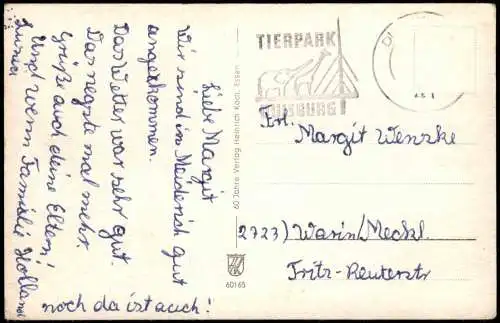 Liebe Margit
Wir sind in Meiderich gut
angekommen.
Das Wetter war sehr gut.
Das negste mal mehr.
Grüße auch deine Eltern!
Und wenn Familie Holland
noch da ist auch!
60 Jahre Verlag Heinrich Koch, Essen
60165
TIERPARK
DUISBURG!
Frl.
Margit Wenzke
2723) Warin/Meckl.
Fritz-Reuterstr